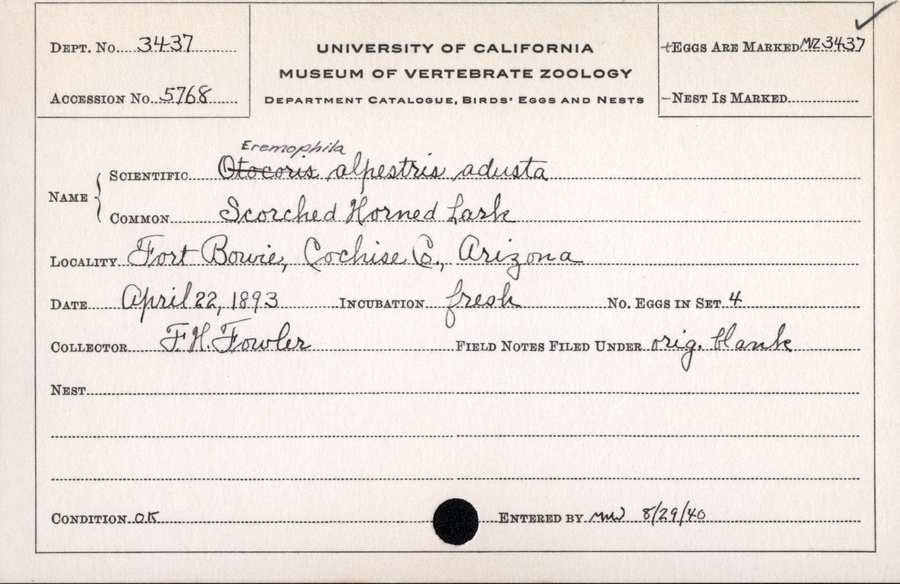 DEPT. NO. 3437
ACCESSION NO. 5768
UNIVERSITY OF CALIFORNIA
MUSEUM OF VERTEBRATE ZOOLOGY
DEPARTMENT CATALOGUE, BIRDS' EGGS AND NESTS
+EGGS ARE MARKED MZ3437
–NEST IS MARKED
Eremophila
NAME
SCIENTIFIC Otocoris alpestris adusta
COMMON Scorched Horned Lark
LOCALITY Fort Bowie, Cochise Co., Arizona
DATE April 22, 1893 INCUBATION fresh NO. EGGS IN SET 4
COLLECTOR F.H. Fowler FIELD NOTES FILED UNDER orig. blank
NEST
CONDITION OK ENTERED BY 8/29/40